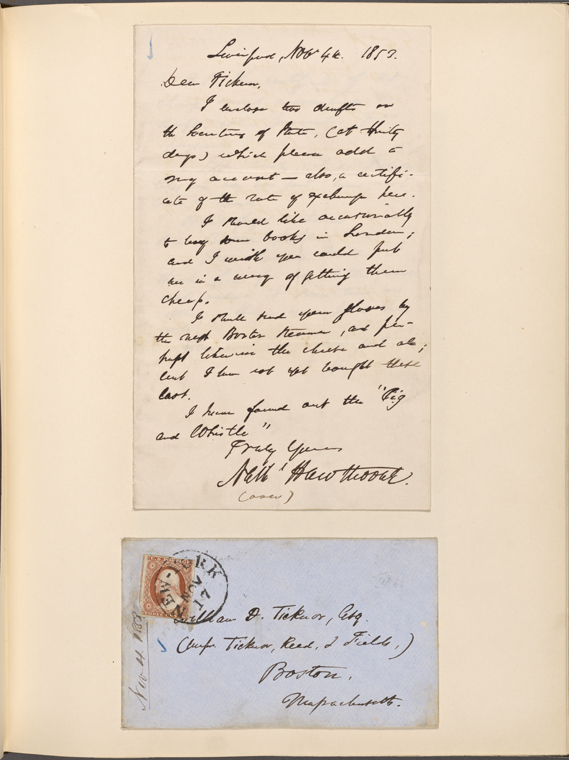 Liverpool, Nov 4th 1853.
Dear Ticknor,
I enclose two drafts on
the Secretary of State, (at thirty
days) which please add to
my account — also, a certifi-
cate of the rate of exchange here.
I should like occasionally
to buy some books in London;
and I wish you could put
me in a way of getting them
cheap.
I shall send your gloves by
the next Boston steamer, and per-
haps likewise the cheese and ale;
but I have not yet bought these
last.
I have found out the "Pig
and Whistle"
Truly Yours
Nathl Hawthorne.
(over)
NEW-YORK
NOV
17
William D. Ticknor, Esq.
(Messrs Ticknor, Reed, & Fields,)
Boston,
Massachusetts.
Nov 4 1853